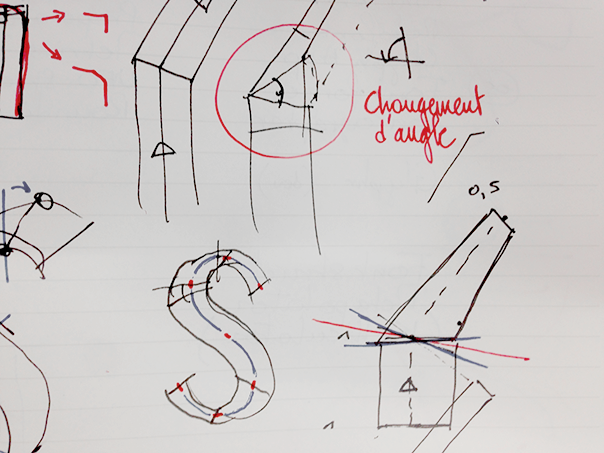 Changement
d'angle
0,5
S